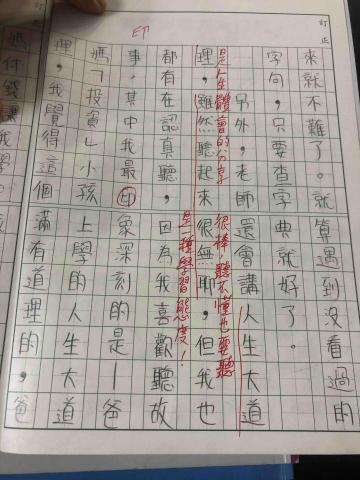 訂正
訂正
來就不難了。就算遇到沒看過的
字句，只要查字典就好了。
另外，老師還會講人生大道
是人生體會的分享
很棒，聽不懂也要聽
理，雖然聽起來很無聊，但我也
是一種學習態度！
都有在認真聽，因為我喜歡聽故
印
事，其中我最印象深刻的是—爸
媽「投資」小孩上學的人生大道
理，我覺得這個滿有道理的，爸
媽付錢讓我學